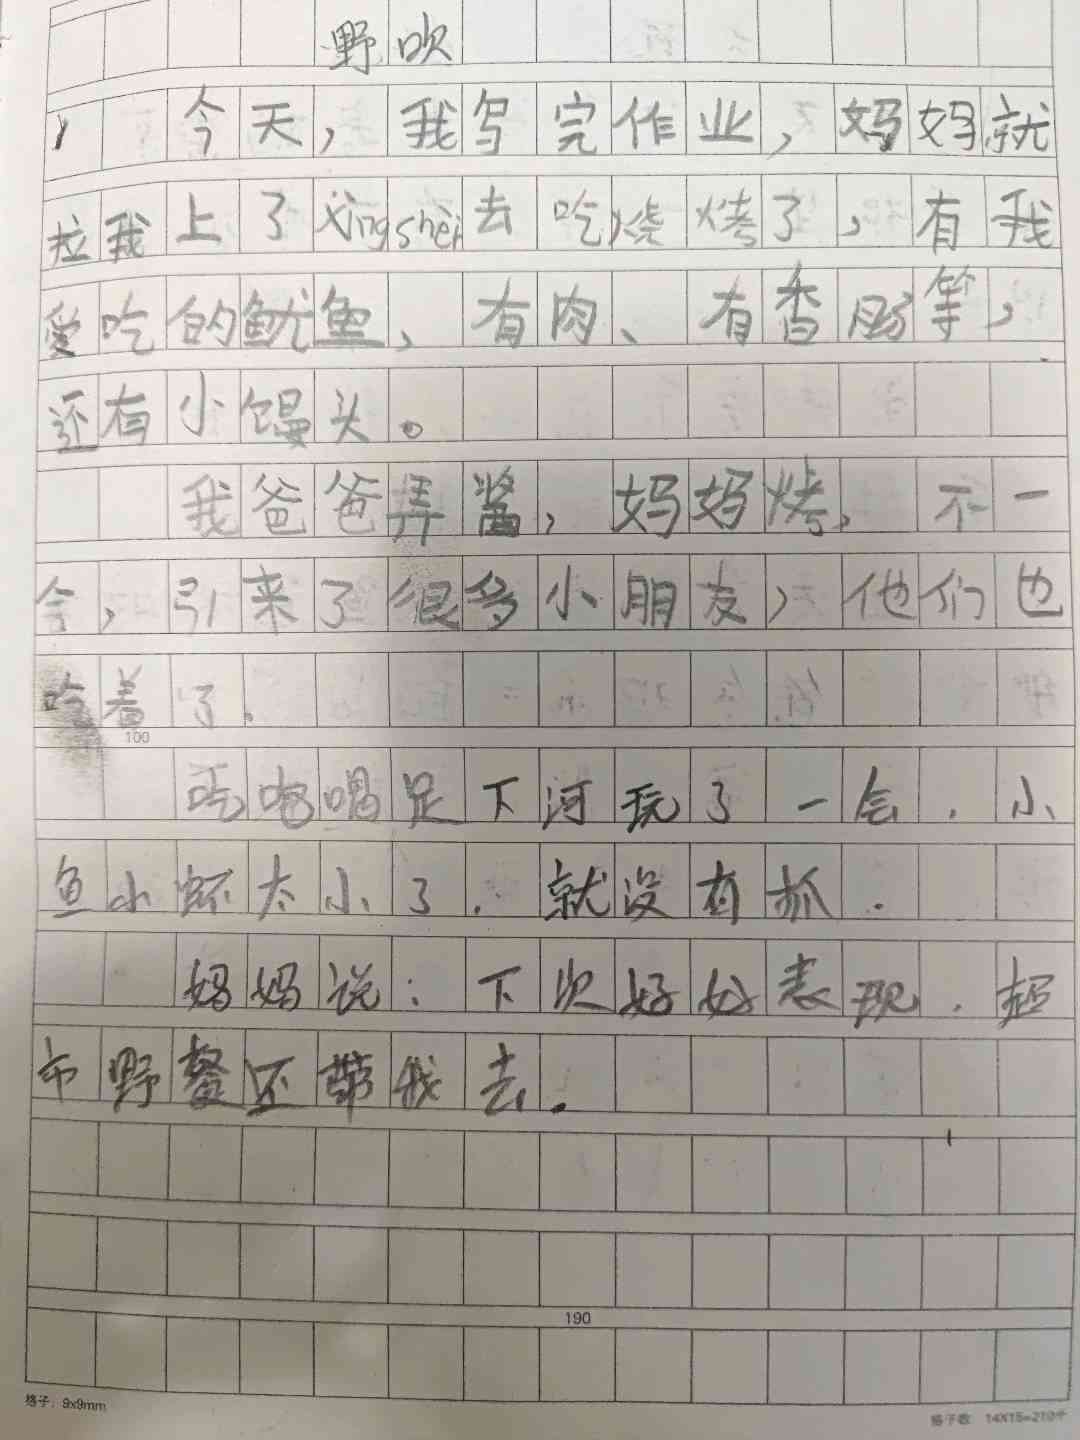 野吹
今天，我写完作业，妈妈就
拉我上了xingshei去吃烧烤了，有我
爱吃的鱿鱼、有肉、有香肠等，
还有小馒头。
我爸爸弄酱，妈妈烤，不一
会，引来了很多小朋友，他们也
吃着了.
100
吃饱喝足下河玩了一会.小
鱼小虾太小了.就没有抓.
妈妈说:下次好好表现.超
市野餐还带我去.
190
格子：9x9mm
格子数 14X15=210个